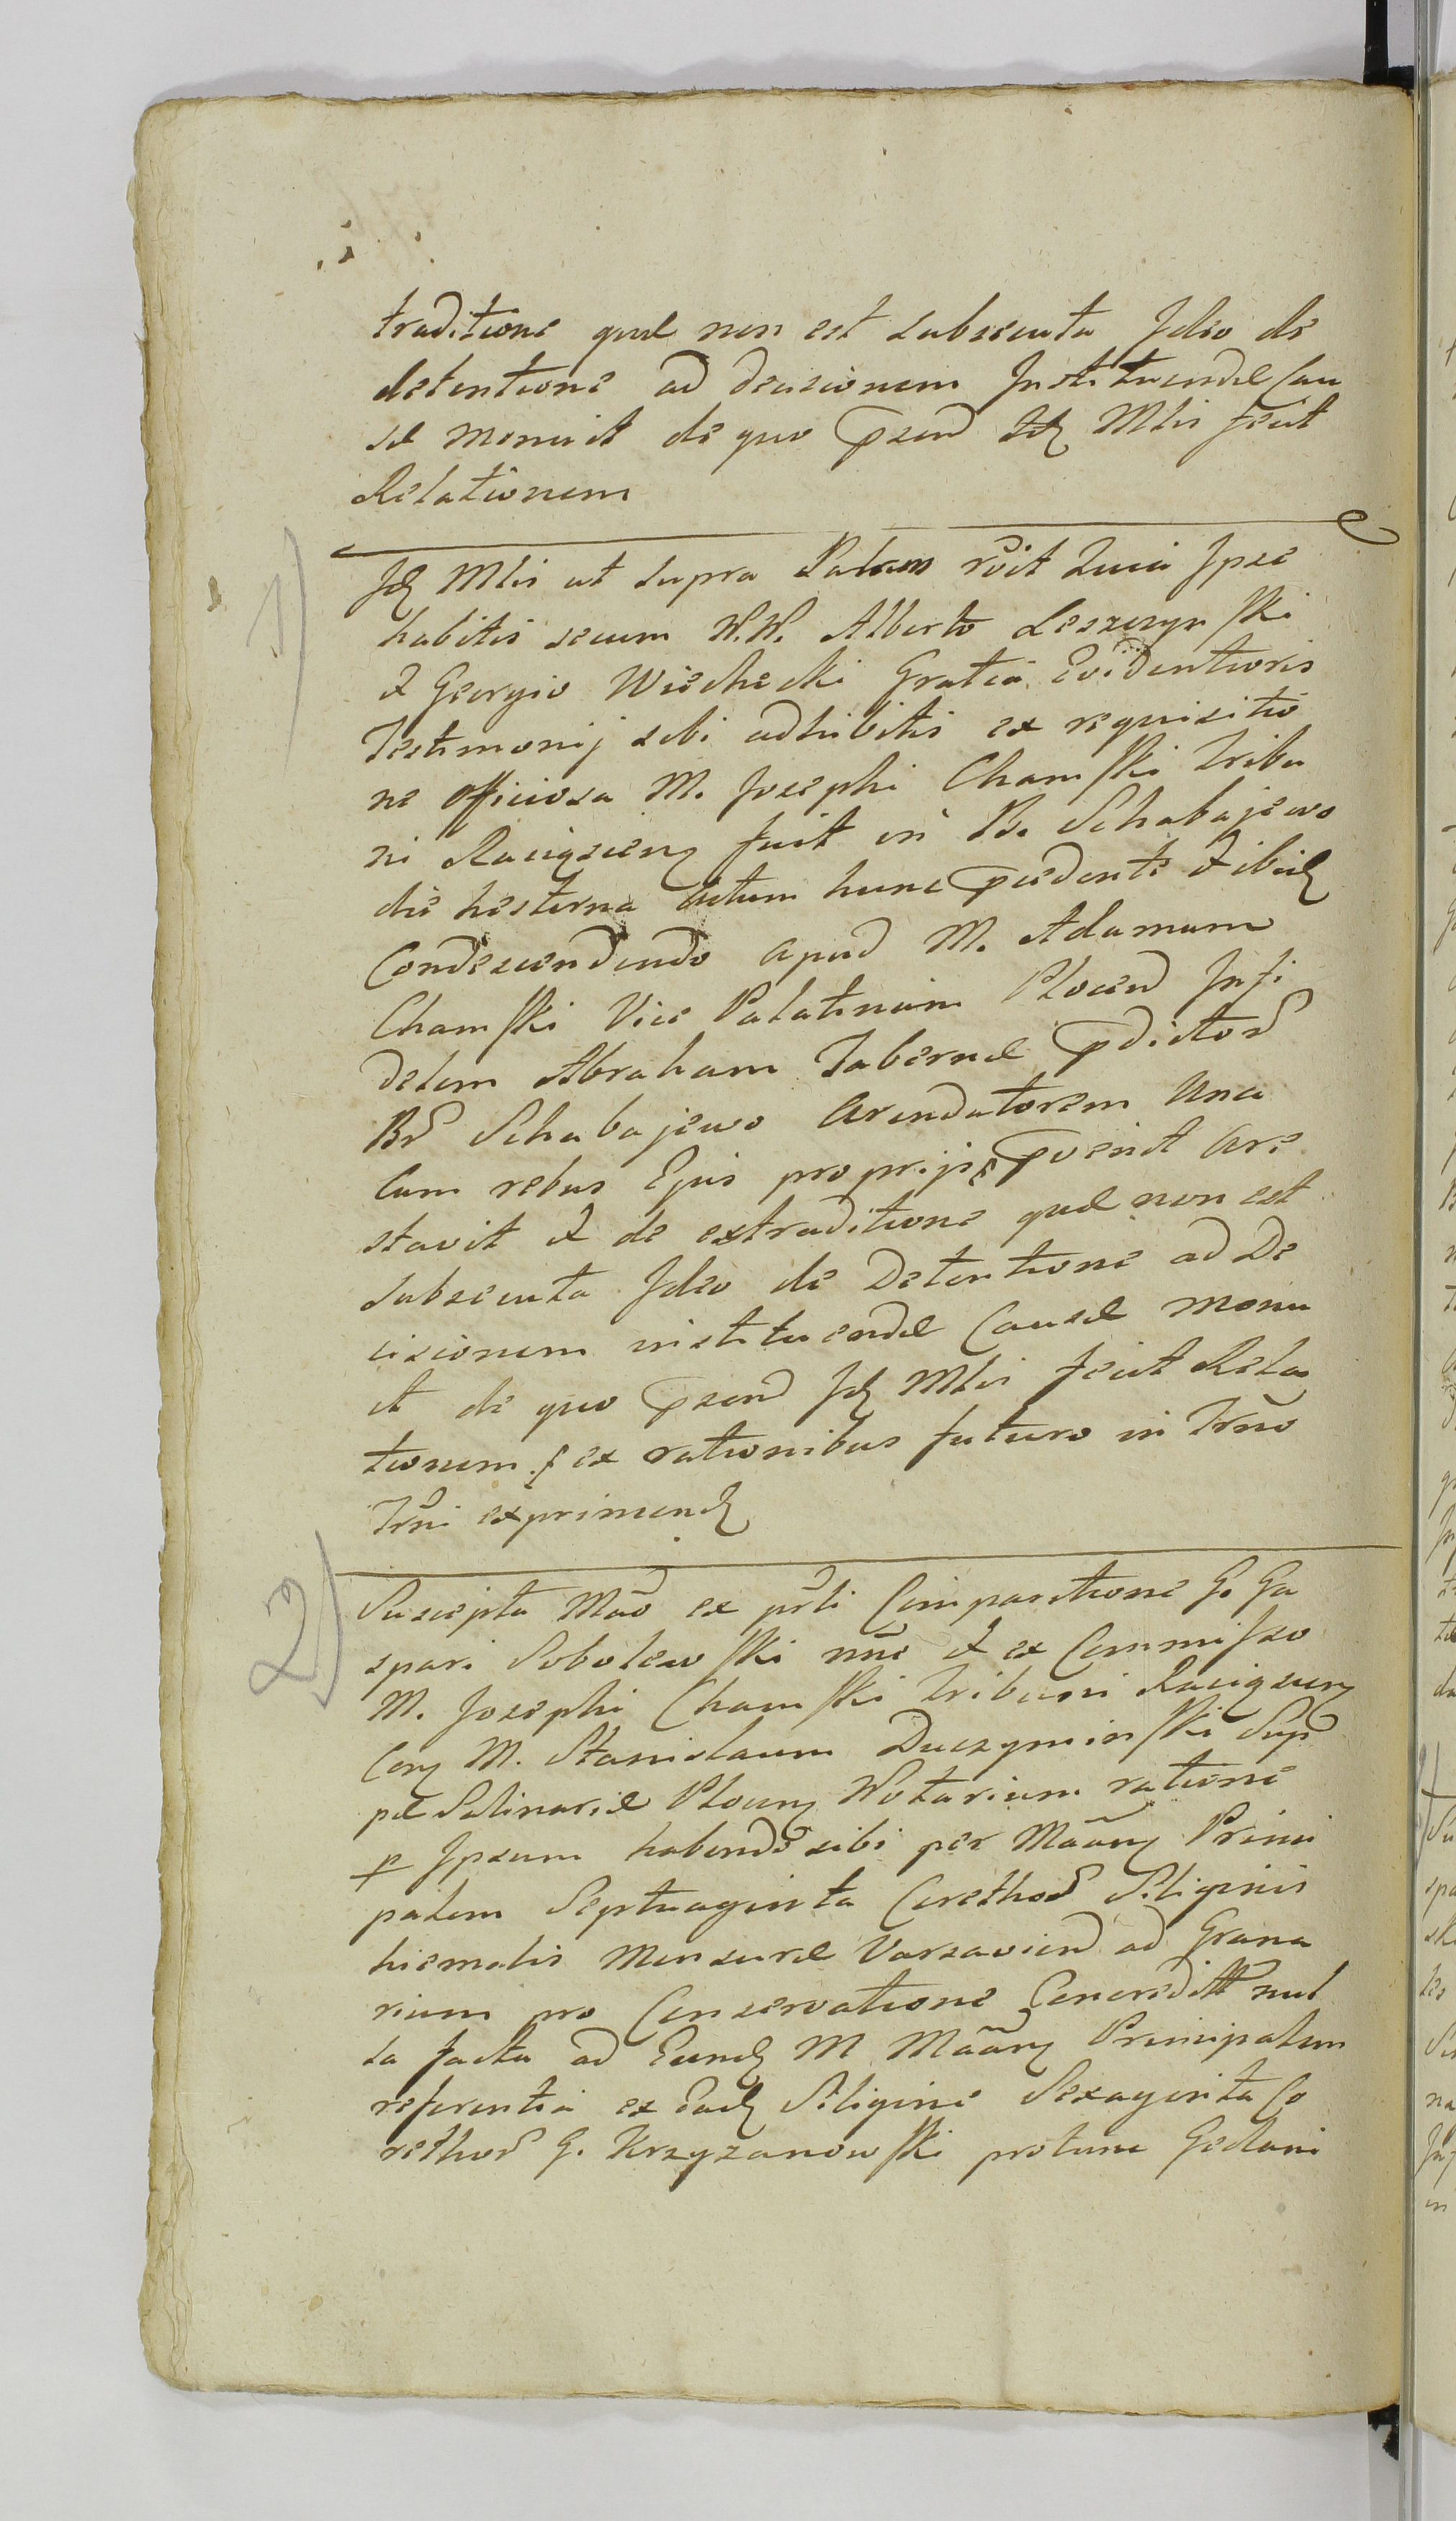 traditione quæ non est subsecuta Ideo de
detentione ad decisionem Instituendæ Cau
sæ monuit de quo præsen Idem Mlis fecit
Relationem
1)
Idem Mlis ut supra Palam rōit Quia Ipse
habitis secum N.N. Alberto Leszczynski
& Georgio Wiechecki Gratia Evidentioris
Testimonij sibi adhibitis ex requisitio
ne officiosa M. Josephi Chamski Tribu
ni Raciązien fuit in B. Schabajewo
die hesterna Actum hunc præcedente & ibid
Condescendendo apud M. Adamum
Chamski Vice Palatinum Plocen Infi
delem Abraham Tabernæ prædictor
Bor Schabajewo Arendatorem Una
Cum rebus Ejus proprijs prævenit Are
stavit & de extraditione quæ non est
subsecuta Ideo de Detentione ad De
cisionem instituendæ Causæ monu
it de quo præsen Idem Mlis fecit Rela
tionem ex rationibus futuro in Trno
Trni exprimend
2)
Suscepta Mās ex prti Comparitione G. Ga
spari Sobolewski nne & ex Commisso
M. Josephi Chamski Tribuni Raciązien
Con M. Stanislaum Duczyminski Sup
pæ Salinariæ Plocen Notarium ratione
p Ipsum habendo sibi per Māan Princi
palem Septuaginta Corethor Siliginis
hiemalis Mensuræ Varsavien ad Grana
rium pro Conservatione Concredit nul
la facta ad Eund M Māan Principalem
referentia ex Ead Siligine Sexaginta Co
rethor G. Krzyzanowski protunc Gedani